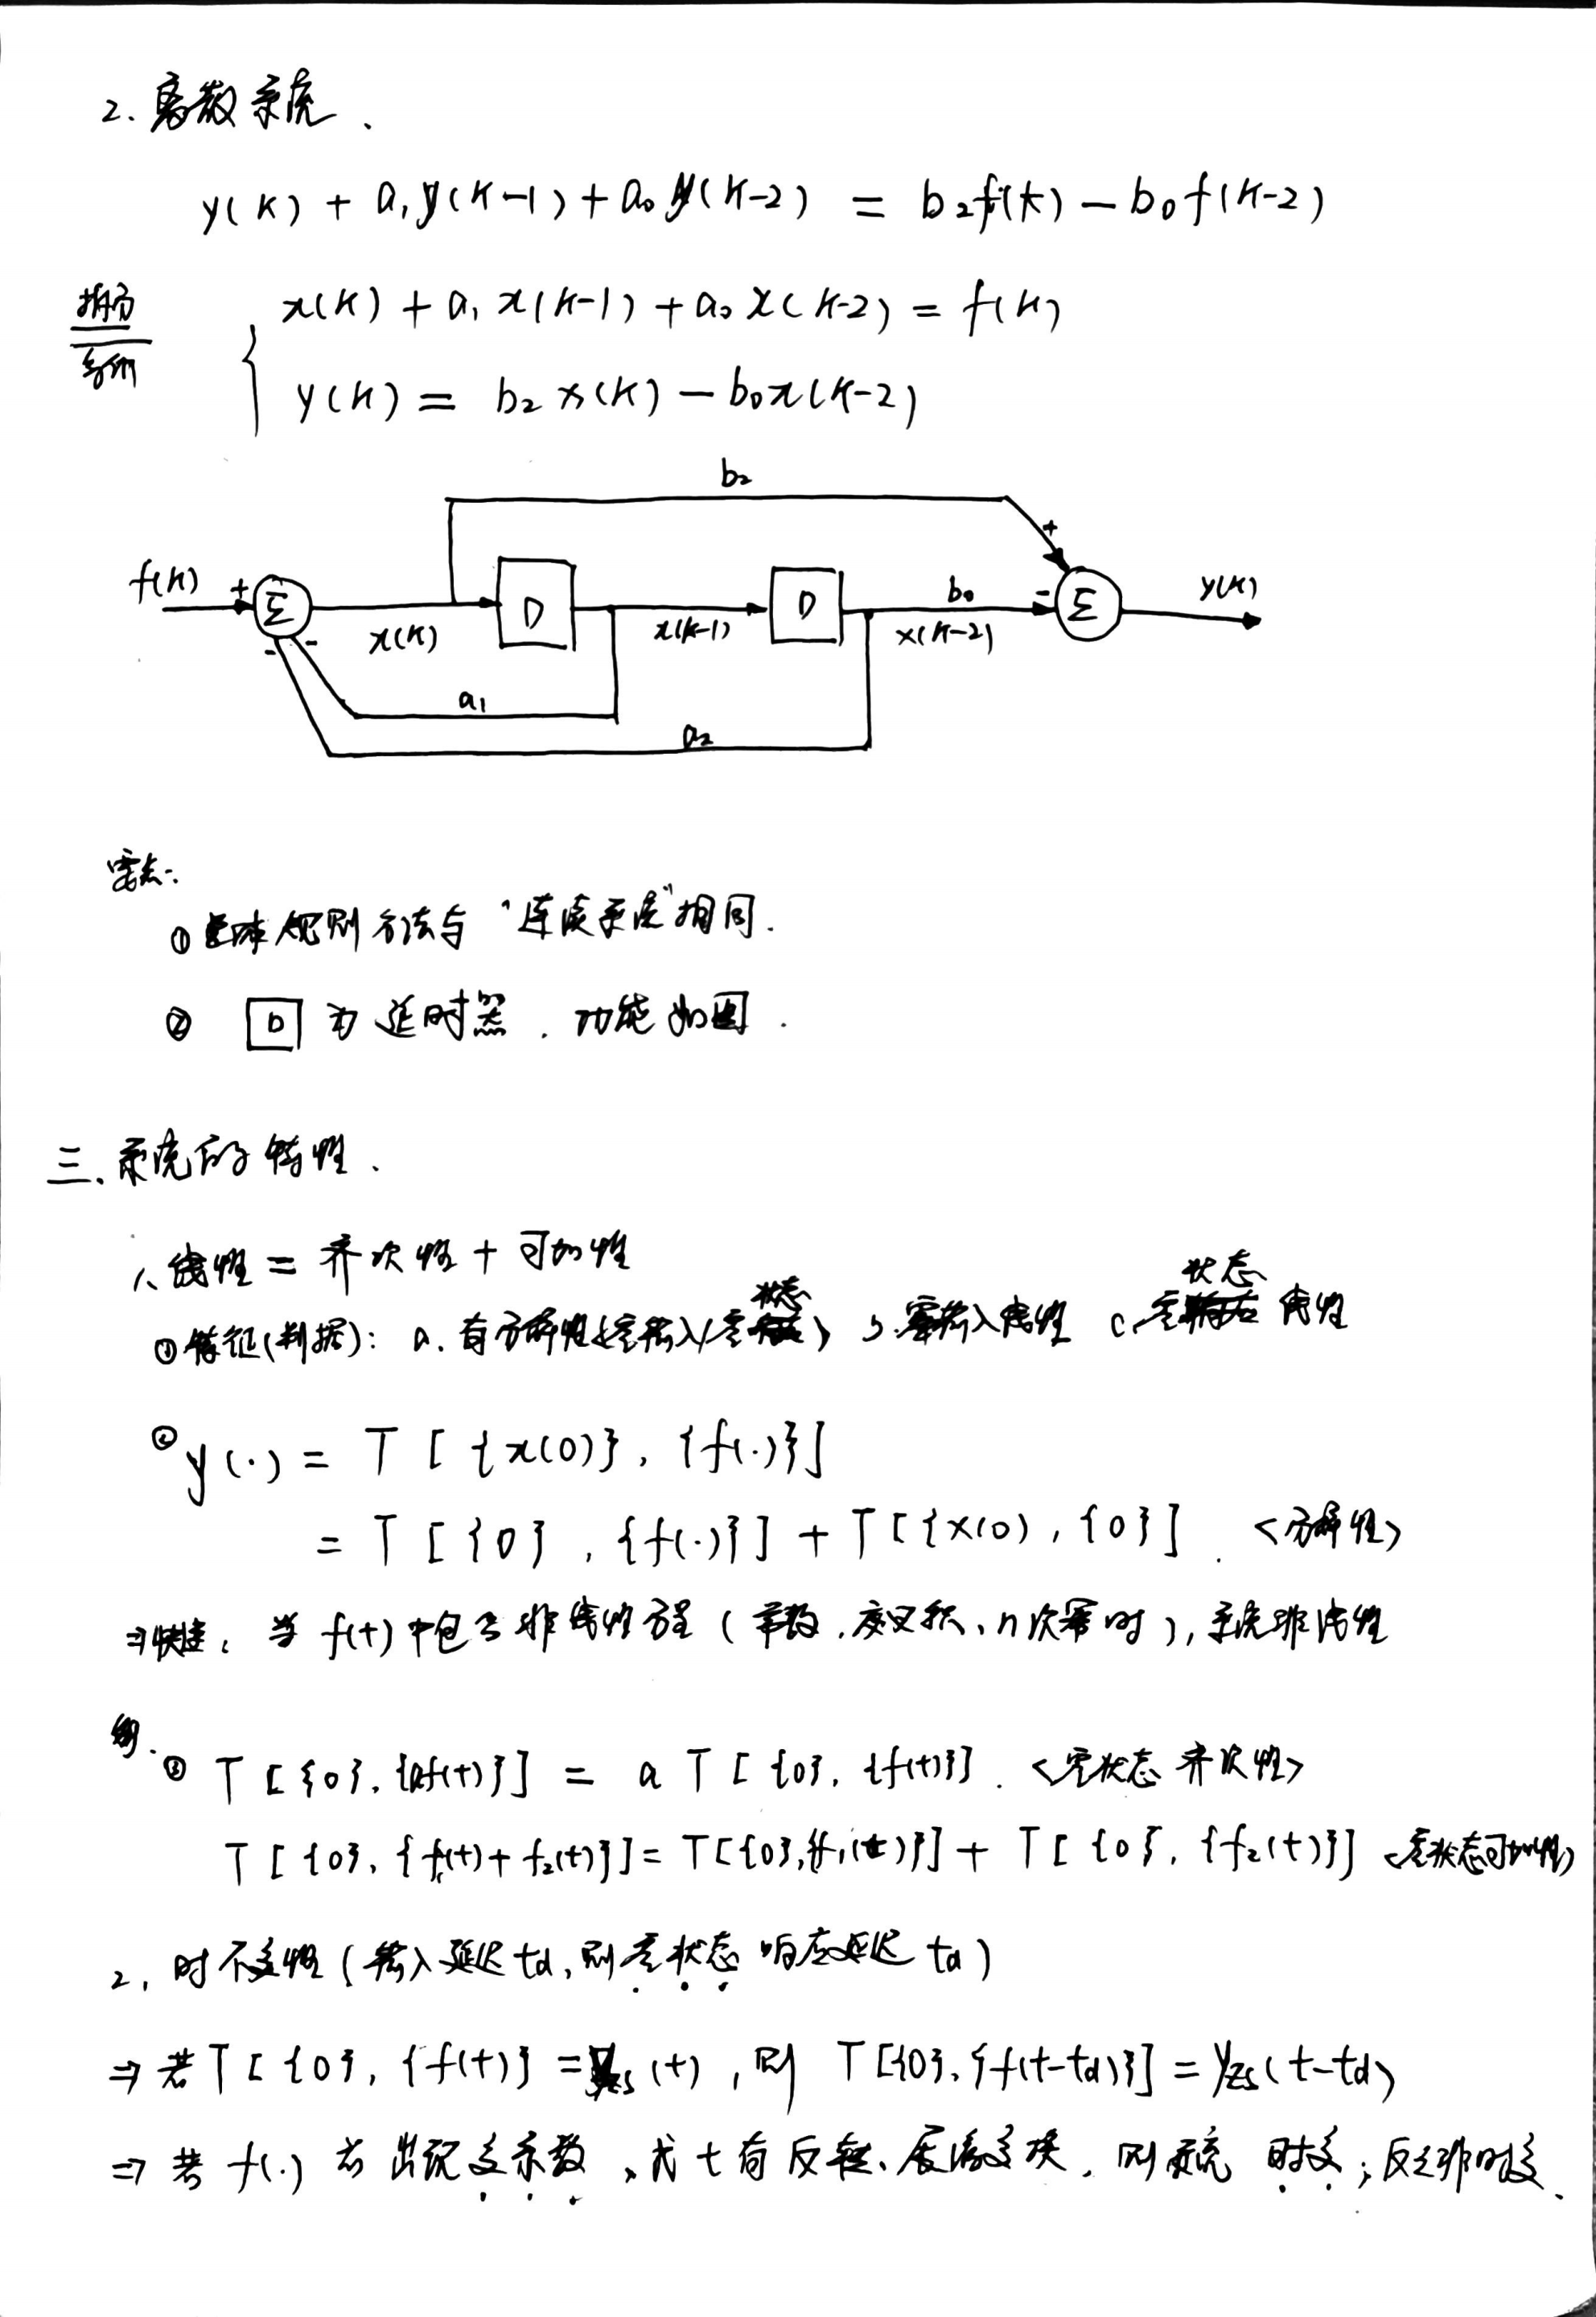 2. 离散系统.
y(k) + a₁y(k-1) + a₀y(k-2) = b₂f(k) - b₀f(k-2)
拆分
x(k) + a₁x(k-1) + a₀x(k-2) = f(k)
y(k) = b₂x(k) - b₀x(k-2)
b₂
+
f(k) + Σ D D b₀ - Σ y(k)
x(k) x(k-1) x(k-2)
- -
a₁
a₂
要点:
① 整体规则方法与“连续系统”相同.
② D 为延时器. 功能如图.
三. 系统的特性.
1. 线性 = 齐次性 + 可加性
①特征(判据): a. 有分解性(零输入/零状态) b. 零输入线性 c. 零状态线性
② y(·) = T[{x(0)}, {f(·)}]
= T[{0}, {f(·)}] + T[{x(0), {0}]. <分解性>
⇒快速: 当 f(t) 中包含非线性方程(常数、交叉积、n次幂时), 系统非线性
③ T[{0}, {af(t)}] = aT[{0}, {f(t)}]. <零状态齐次性>
T[{0}, {f₁(t) + f₂(t)}] = T[{0}, {f₁(t)}] + T[{0}, {f₂(t)}] <零状态可加性>
2. 时不变性(输入延迟 td, 则零状态响应延迟 td)
⇒ 若 T[{0}, {f(t)}] = yzs(t), 则 T[{0}, {f(t-td)}] = yzs(t-td)
⇒ 若 f(·) 前出现变系数、或 t 有反转、展缩变换, 则系统时变; 反之非时变.